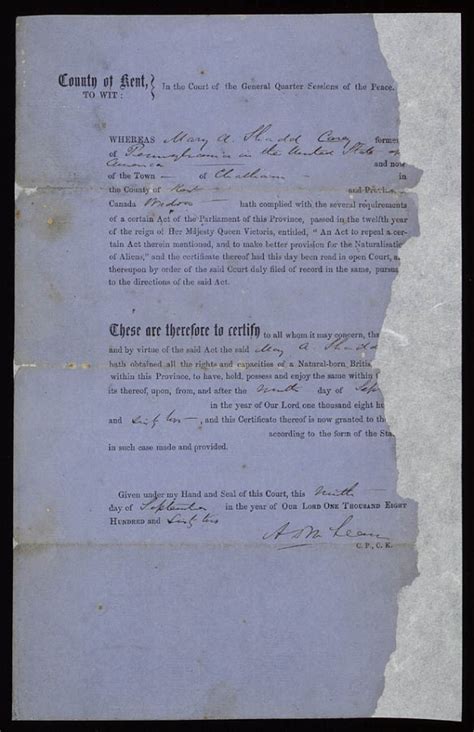 County of Kent, } In the Court of the General Quarter Sessions of the Peace.
TO WIT:
WHEREAS Mary A. Shadd Cary former
of Pennsylvania in the United State of
America and now
of the Town - of Chatham -
in the County of Kent and Provin
Canada Widow hath complied with the several requirements
of a certain Act of the Parliament of this Province, passed in the twelfth year
of the reign of Her Majesty Queen Victoria, entitled, "An Act to repeal a cer-
tain Act therein mentioned, and to make better provision for the Naturalisatio
of Aliens," and the certificate thereof had this day been read in open Court, a
thereupon by order of the said Court duly filed of record in the same, pursua
to the directions of the said Act.
These are therefore to certify to all whom it may concern, tha
and by virtue of the said Act the said Mary A Shadd
hath obtained all the rights and capacities of a Natural-born Britis
within this Province, to have, hold, possess and enjoy the same within
its thereof, upon, from, and after the Ninth day of Sept
in the year of Our Lord one thousand eight hu
and Sixty two -, and this Certificate thereof is now granted to the
according to the form of the Sta
in such case made and provided.
Given under my Hand and Seal of this Court, this Ninth
day of September in the year of OUR LORD ONE THOUSAND EIGHT
HUNDRED and Sixty two
C. P., C. K.